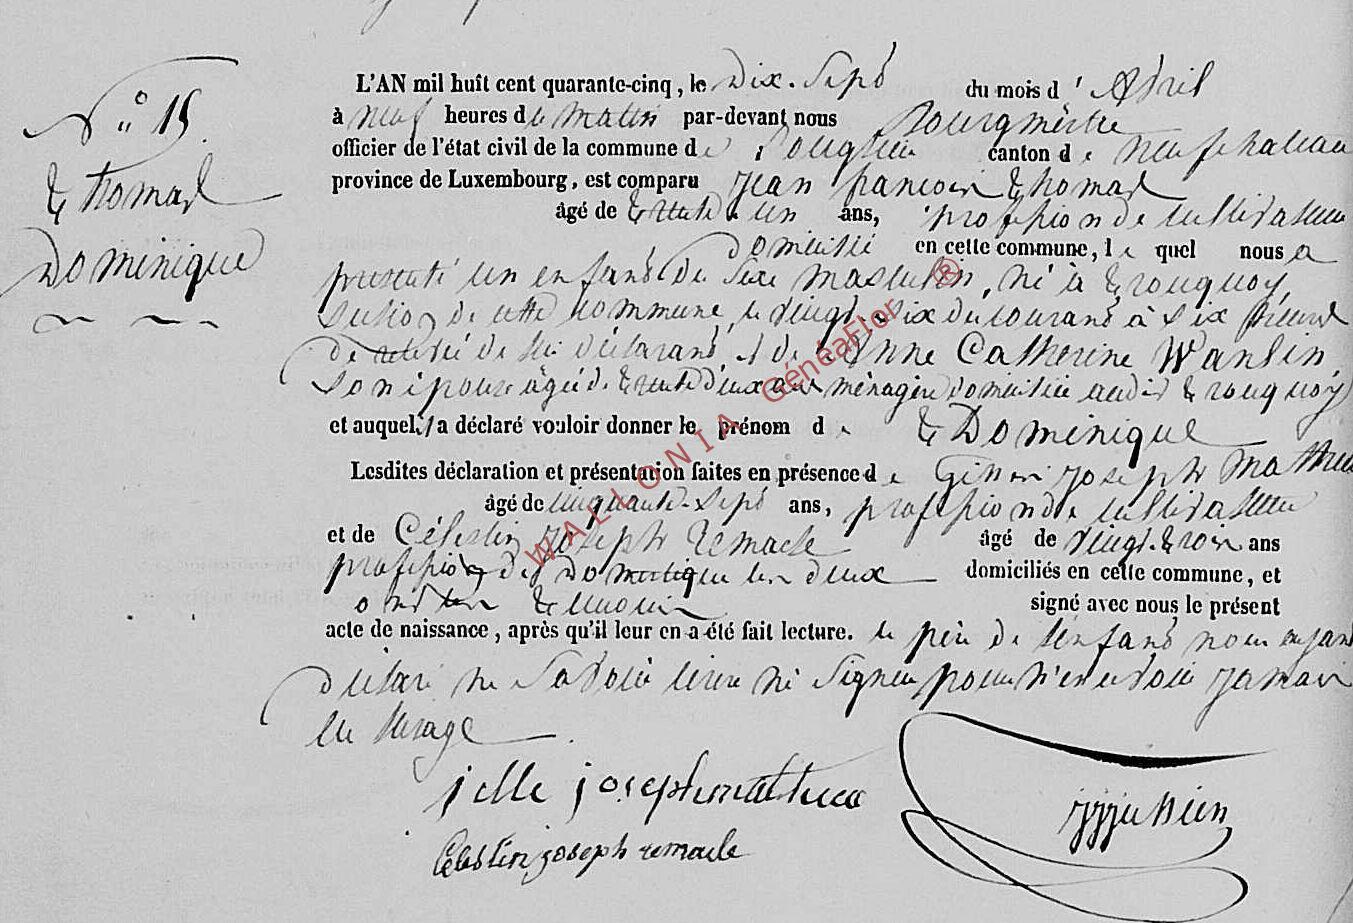 N° 15.
Thomas
Dominique
L'AN mil huit cent quarante-cinq, le Dix-Sept du mois d'Avril
à neuf heures du matin par-devant nous Bourgmestre
officier de l'état civil de la commune de canton de neufchateau
province de Luxembourg, est comparu jean francois Thomas
âgé de trente un ans, profession de cultivateur
Domicilié en cette commune, lequel nous a
présenté un enfant du sexe masculin, né à trouquoy
section de cette commune, le du courant à six heures
de de lui déclarant et de Anne Catherine Wanlin
son épouse âgée de trente deux ans ménagère domiciliée audit trouquoy
et auquel il a déclaré vouloir donner le prénom de Dominique
Lesdites déclaration et présentation faites en présence de joseph Mathieu
âgé de cinquante-sept ans, profession de cultivateur
et de Célestin joseph remacle âgé de vingt-trois ans
profession de Domestique les deux domiciliés en cette commune, et
ont les témoins signé avec nous le présent
acte de naissance, après qu'il leur en a été fait lecture. le père de l'enfant nous ayant
déclaré ne savoir écrire ni signer pour n'en avoir jamais
eu l'usage
jille joseph mathieu
Célestin joseph remacle
WALLONIA GénéaFlor ®